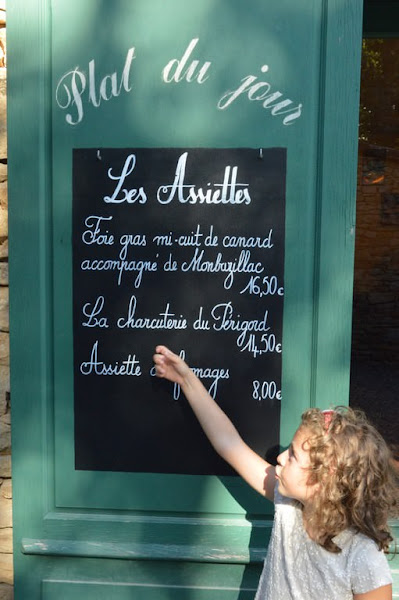 Plat du jour
Les Assiettes
Foie gras mi-cuit de canard
accompagné de Monbazillac
16,50€
La charcuterie du Périgord
14,50€
Assiette de fromages
8,00€